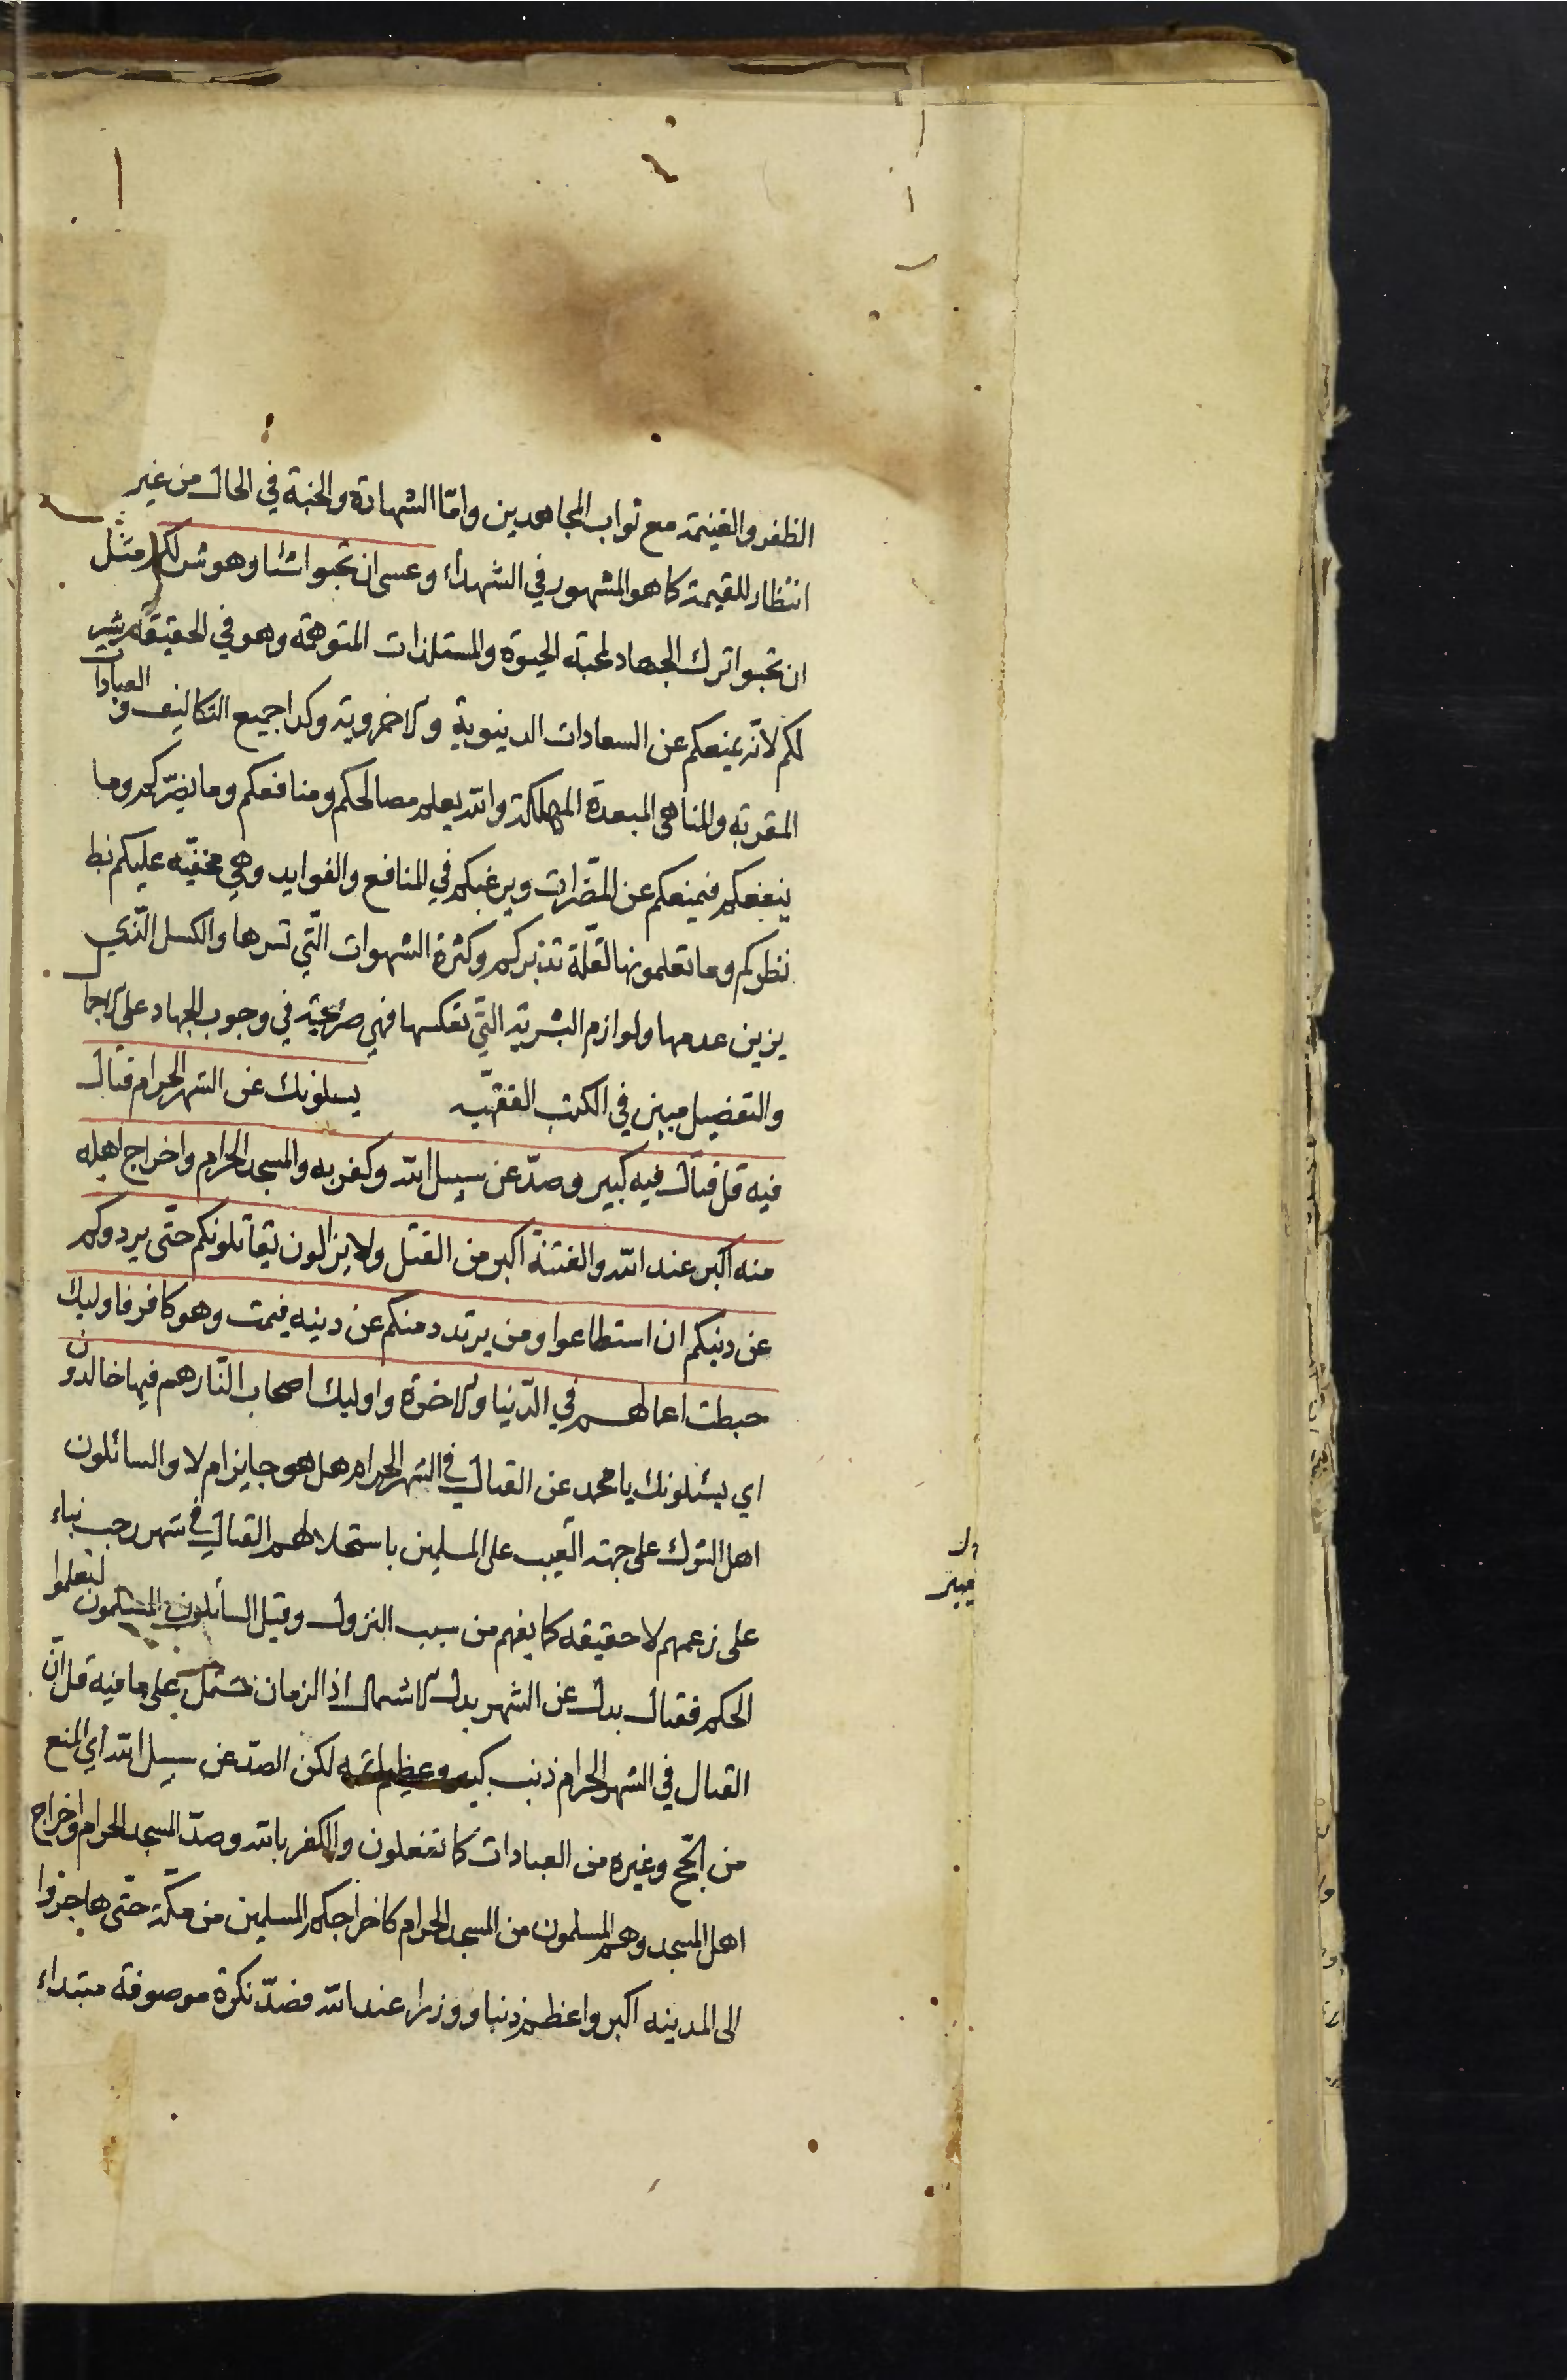 الظفر والغنيمة مع ثواب المجاهدين واما الشهادة والجنة في الحال من غير
انتظار للقيمة كما هو المشهور في الشهداء وعسى ان تحبوا شيئا وهو شر لكم مثل
ان تحبوا ترك الجهاد لمحبة الحيوة والمستلذات المتوهمة وهو في الحقيقة شر
لكم لانه يمنعكم عن السعادات الدينوية والاخروية وكذا جميع التكاليف والعبادات
المقربة والمناهي المبعدة المهلكة والله يعلم مصالحكم ومنافعكم وما يضركم وما
ينفعكم فيمنعكم عن المضرات ويرغبكم في المنافع والفوايد وهي مخفية عليكم
نظركم وما تعلمونها لقلة تدبركم وكثرة الشهوات التي تسرها والكسل الذي
يزين عدمها ولوازم البشرية التي تعكسها فهي صريحة في وجوب الجهاد على الاجمال
والتفصيل مبين في الكتب الفقهية يسلونك عن الشهر الحرام قتال
فيه قل قتال فيه كبير وصد عن سبيل الله وكفر به والمسجد الحرام واخراج اهله
منه اكبر عند الله والفتنة اكبر من القتل ولا يزالون يقاتلونكم حتى يردوكم
عن دينكم ان استطاعوا ومن يرتدد منكم عن دينه فيمت وهو كافر فاوليك
حبطت اعمالهم في الدنيا والاخرة واوليك اصحاب النار هم فيها خالدون
اي يسئلونك يا محمد عن القتال في الشهر الحرام هل هو جايز ام لا والسائلون
اهل الشرك على جهة العيب على المسلمين باستحلالهم القتال في شهر رجب بناء
على زعمهم لا حقيقة كما يفهم من سبب النزول وقيل السائلون المسلمون ليعلموا
الحكم فقتال بدل عن الشهر بدل الاشتمال اذ الزمان مشتمل على ما فيه قل ان
القتال في الشهر الحرام ذنب كبير وعظيم اثمه لكن الصد عن سبيل الله اي المنع
من الحج وغيره من العبادات كما تفعلون والكفر بالله وصد المسجد الحرام واخراج
اهل المسجد وهم المسلمون من المسجد الحرام كاخراجكم المسلمين من مكة حتى هاجروا
الى المدينه اكبر واعظم ذنبا ووزرا عند الله فصد نكرة موصوفة مبتداء